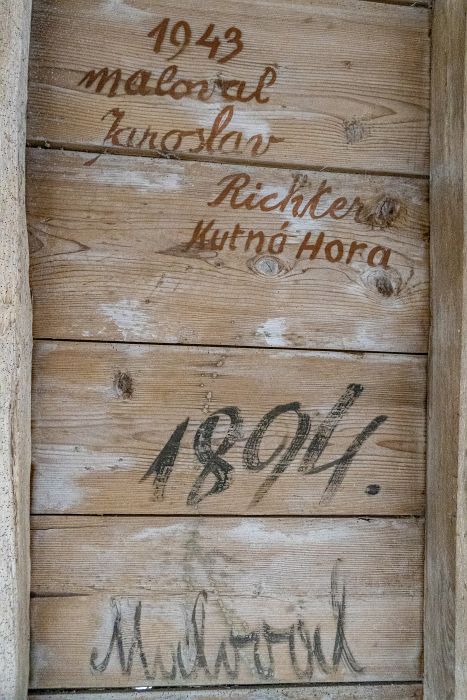 1943
maloval
Jaroslav
Richter
Kutná Hora
1894.